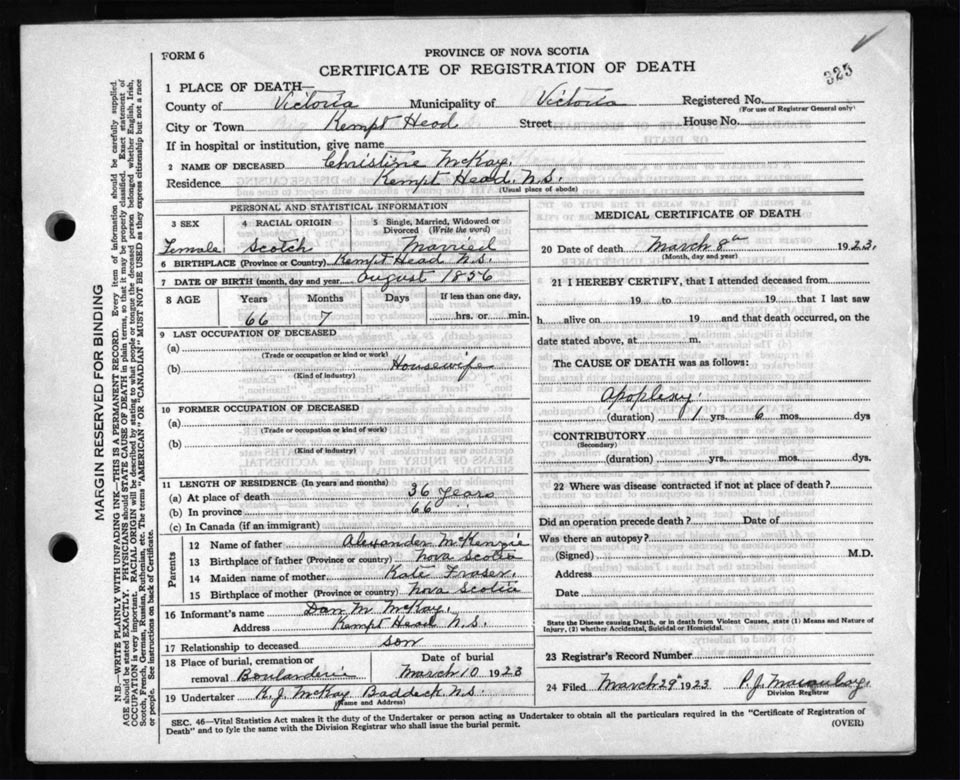 FORM 6
PROVINCE OF NOVA SCOTIA
CERTIFICATE OF REGISTRATION OF DEATH
325
1 PLACE OF DEATH—
County of Victoria Municipality of Victoria Registered No.
(For use of Registrar General only)
City or Town Kempt Head Street House No.
If in hospital or institution, give name
2 NAME OF DECEASED Christine McKay.
Residence Kempt Head. N.S.
(Usual place of abode)
PERSONAL AND STATISTICAL INFORMATION
3 SEX 4 RACIAL ORIGIN 5 Single, Married, Widowed or Divorced (Write the word)
Female Scotch Married
6 BIRTHPLACE (Province or Country) Kempt Head N.S.
7 DATE OF BIRTH (month, day and year) August 1856
8 AGE Years Months Days If less than one day,
66 7 hrs. or min.
9 LAST OCCUPATION OF DECEASED
(a)
(Trade or occupation or kind or work)
(b) Housewife
(Kind of industry)
10 FORMER OCCUPATION OF DECEASED
(a)
(Trade or occupation or kind of work)
(b)
(Kind of industry)
11 LENGTH OF RESIDENCE (In years and months)
(a) At place of death 36 years
(b) In province 66 "
(c) In Canada (if an immigrant)
Parents
12 Name of father Alexander McKenzie
13 Birthplace of father (Province or country) Nova Scotia
14 Maiden name of mother Kate Fraser.
15 Birthplace of mother (Province or country) Nova Scotia
16 Informant's name Dan M. McKay.
Address Kempt Head N.S.
17 Relationship to deceased son
18 Place of burial, cremation or removal Boularderie Date of burial March 10 1923
19 Undertaker K. J. McKay Baddeck N.S.
(Name and Address)
MEDICAL CERTIFICATE OF DEATH
20 Date of death March 8th 1923.
(Month, day and year)
21 I HEREBY CERTIFY, that I attended deceased from
19 to 19 that I last saw
h alive on 19 and that death occurred, on
date stated above, at m.
The CAUSE OF DEATH was as follows:
Apoplexy.
(duration) 1 yrs 6 mos. dys
CONTRIBUTORY
(Secondary)
(duration) yrs. mos. dys.
22 Where was disease contracted if not at place of death?
Did an operation precede death? Date of
Was there an autopsy?
(Signed) M.D.
Address
Date
State the Disease causing Death, or in death from Violent Causes, state (1) Means and Nature of Injury, (2) whether Accidental, Suicidal or Homicidal.
23 Registrar's Record Number
24 Filed March 29th 1923 P. J. Macaulay
Division Registrar
SEC. 46—Vital Statistics Act makes it the duty of the Undertaker or person acting as Undertaker to obtain all the particulars required in the "Certificate of Registration of
Death" and to fyle the same with the Division Registrar who shall issue the burial permit.
(OVER)
MARGIN RESERVED FOR BINDING
N.B.—WRITE PLAINLY WITH UNFADING INK—THIS IS A PERMANENT RECORD. Every item of information should be carefully supplied.
AGE should be stated EXACTLY. PHYSICIANS should STATE CAUSE OF DEATH in plain terms, so that it may be properly classified. Exact statement of
OCCUPATION is very important. RACIAL ORIGIN will be described by stating to what people or tongue the deceased person belonged whether English, Irish,
Scotch, French, German, Russian, Ruthenian, etc. The terms "AMERICAN" OR "CANADIAN" MUST NOT BE USED as they express citizenship but not a race
or people. See instructions on back of Certificate.